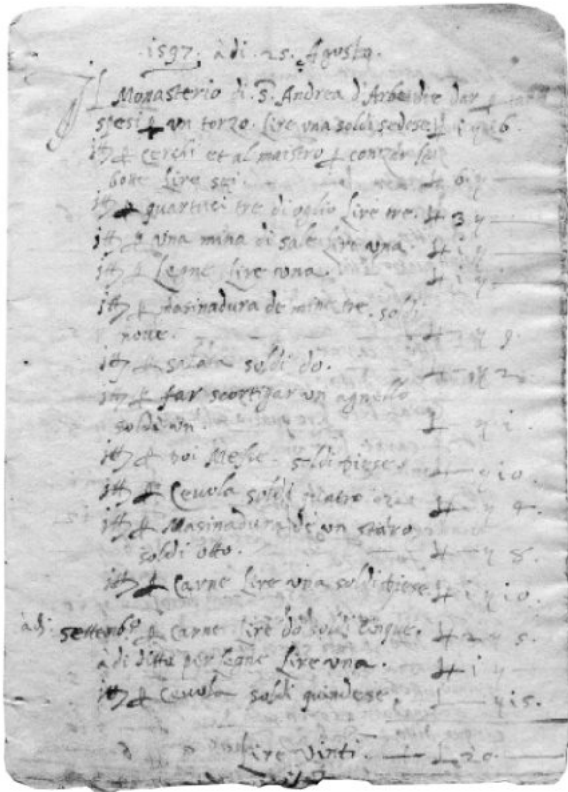 1597. à di. 25. Agosto.
Il Monasterio di S. Andrea d'Arbe die dar p
spesi p un torzo. Lire una soldi sedese L 1 y 16.
itt p cerchi et al maistro p conzar le
botte Lire sei. L 6 y
itt p quartuci tre di oglio Lire tre. L 3 y
itt p una mina di sale Lire una. L 1 y
itt p Legne Lire una. L 1 y
itt p masinadura de mine tre. soldi
noue. L y 9.
itt p salata soldi do. L y 2.
itt p far scortigar un agnello
soldi un. L y 1.
itt p soldi diese. L y 10.
itt p Ceuola soldi quatro L y 4.
itt p Masinadura de un staro
soldi otto. L y 8.
itt p Carne Lire una soldi diese L 1 y 10.
à di settembr p Carne Lire do soldi cinque. L 2 y 5.
à di ditto per legne Lire una. L 1 y
itt p Ceuola soldi quindese. L y 15.
Lire vinti. L 20.